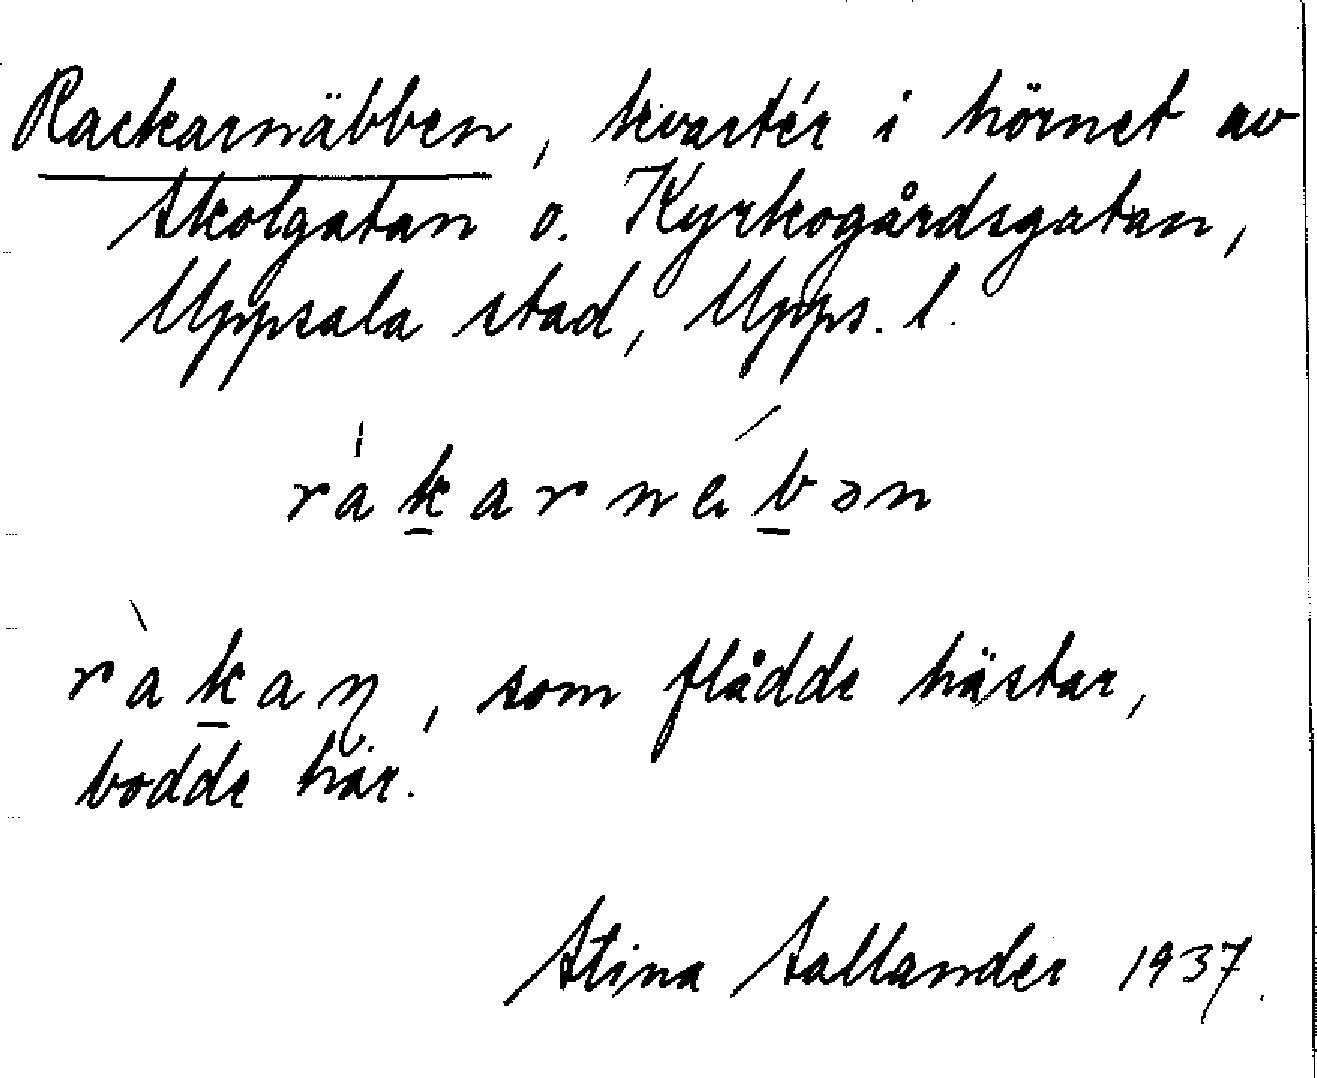 Rackarnäbben, kvartér i hörnet av
Skolgatan o. Kyrkogårdsgatan,
Uppsala stad, Upps. l.
rákarnébən
ràkaꞑ, som flådde hästar,
bodde här.
Stina Sallander 1937.